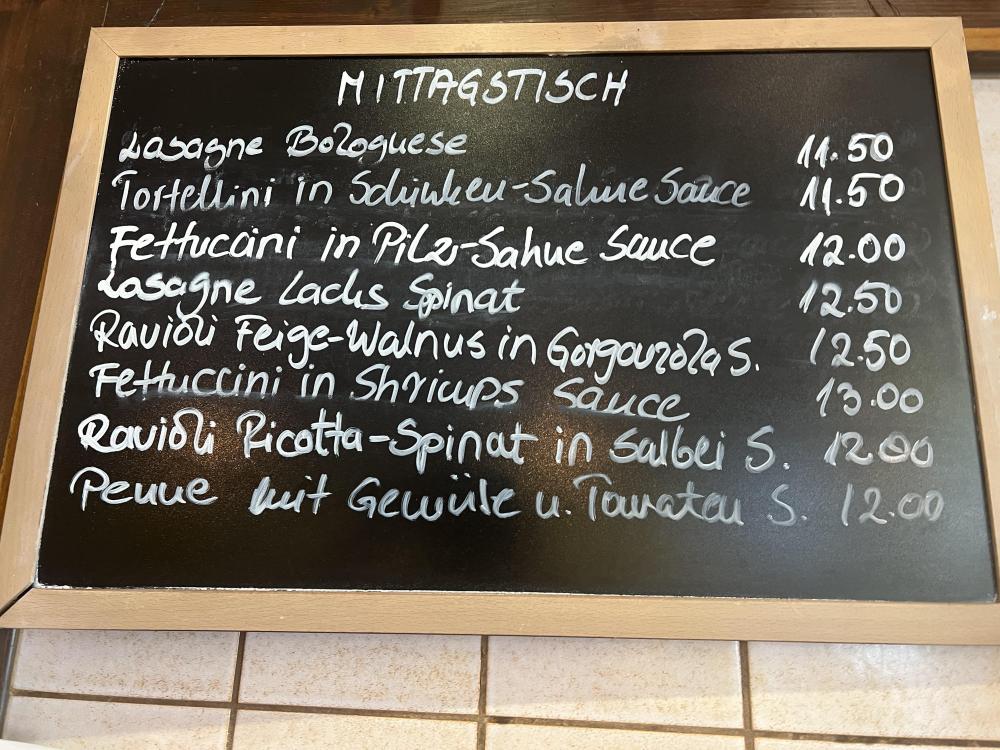 MITTAGSTISCH
Lasagne Bolognese 11.50
Tortellini in Schinken-Sahne Sauce 11.50
Fettuccini in Pilz-Sahne Sauce 12.00
Lasagne Lachs Spinat 12.50
Ravioli Feige-Walnus in Gorgonzola S. 12.50
Fettuccini in Shrimps Sauce 13.00
Ravioli Ricotta-Spinat in Salbei S. 12.00
Penne mit Gemüse u. Tomaten S. 12.00